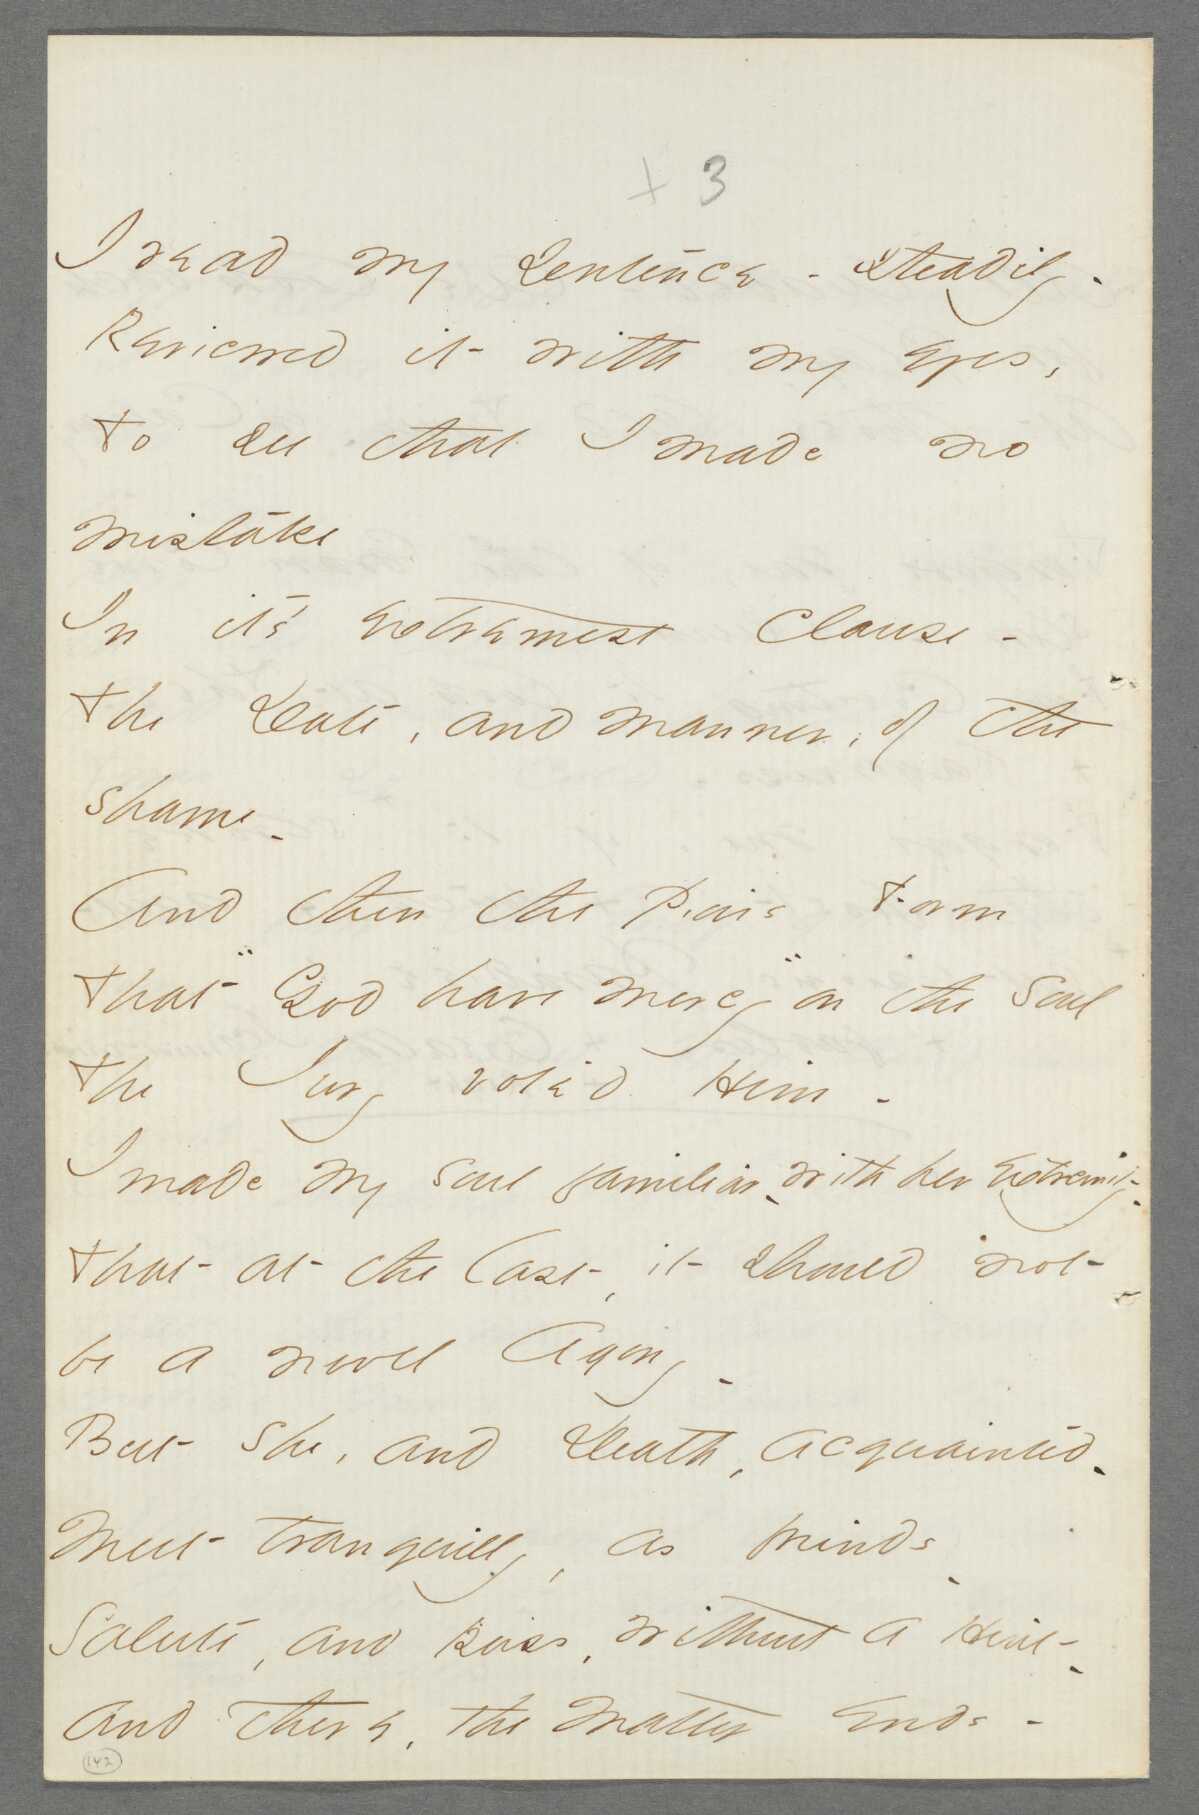 + 3
I read my sentence - steadily -
Reviewed it with my eyes,
To see that I made no
mistake
In it's extremest clause -
The Date, and manner, of the
shame -
And then the Pious Form
That "God have mercy" on the Soul
The Jury voted Him -
I made my soul familiar - with her extremity -
That at the last, it should not
be a novel Agony -
But she, and Death, acquainted -
Meet tranquilly, as friends -
Salute, and pass, without a Hint -
And there, the Matter ends -
142